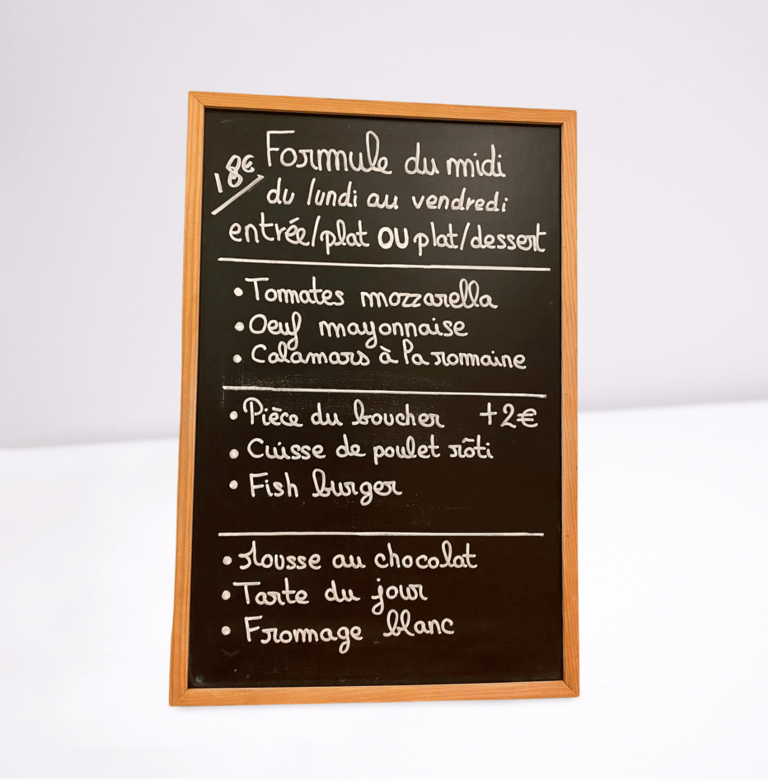 18€ Formule du midi
du lundi au vendredi
entrée/plat OU plat/dessert
• Tomates mozzarella
• Oeuf mayonnaise
• Calamars à la romaine
• Pièce du boucher +2€
• Cuisse de poulet rôti
• Fish burger
• Mousse au chocolat
• Tarte du jour
• Fromage blanc